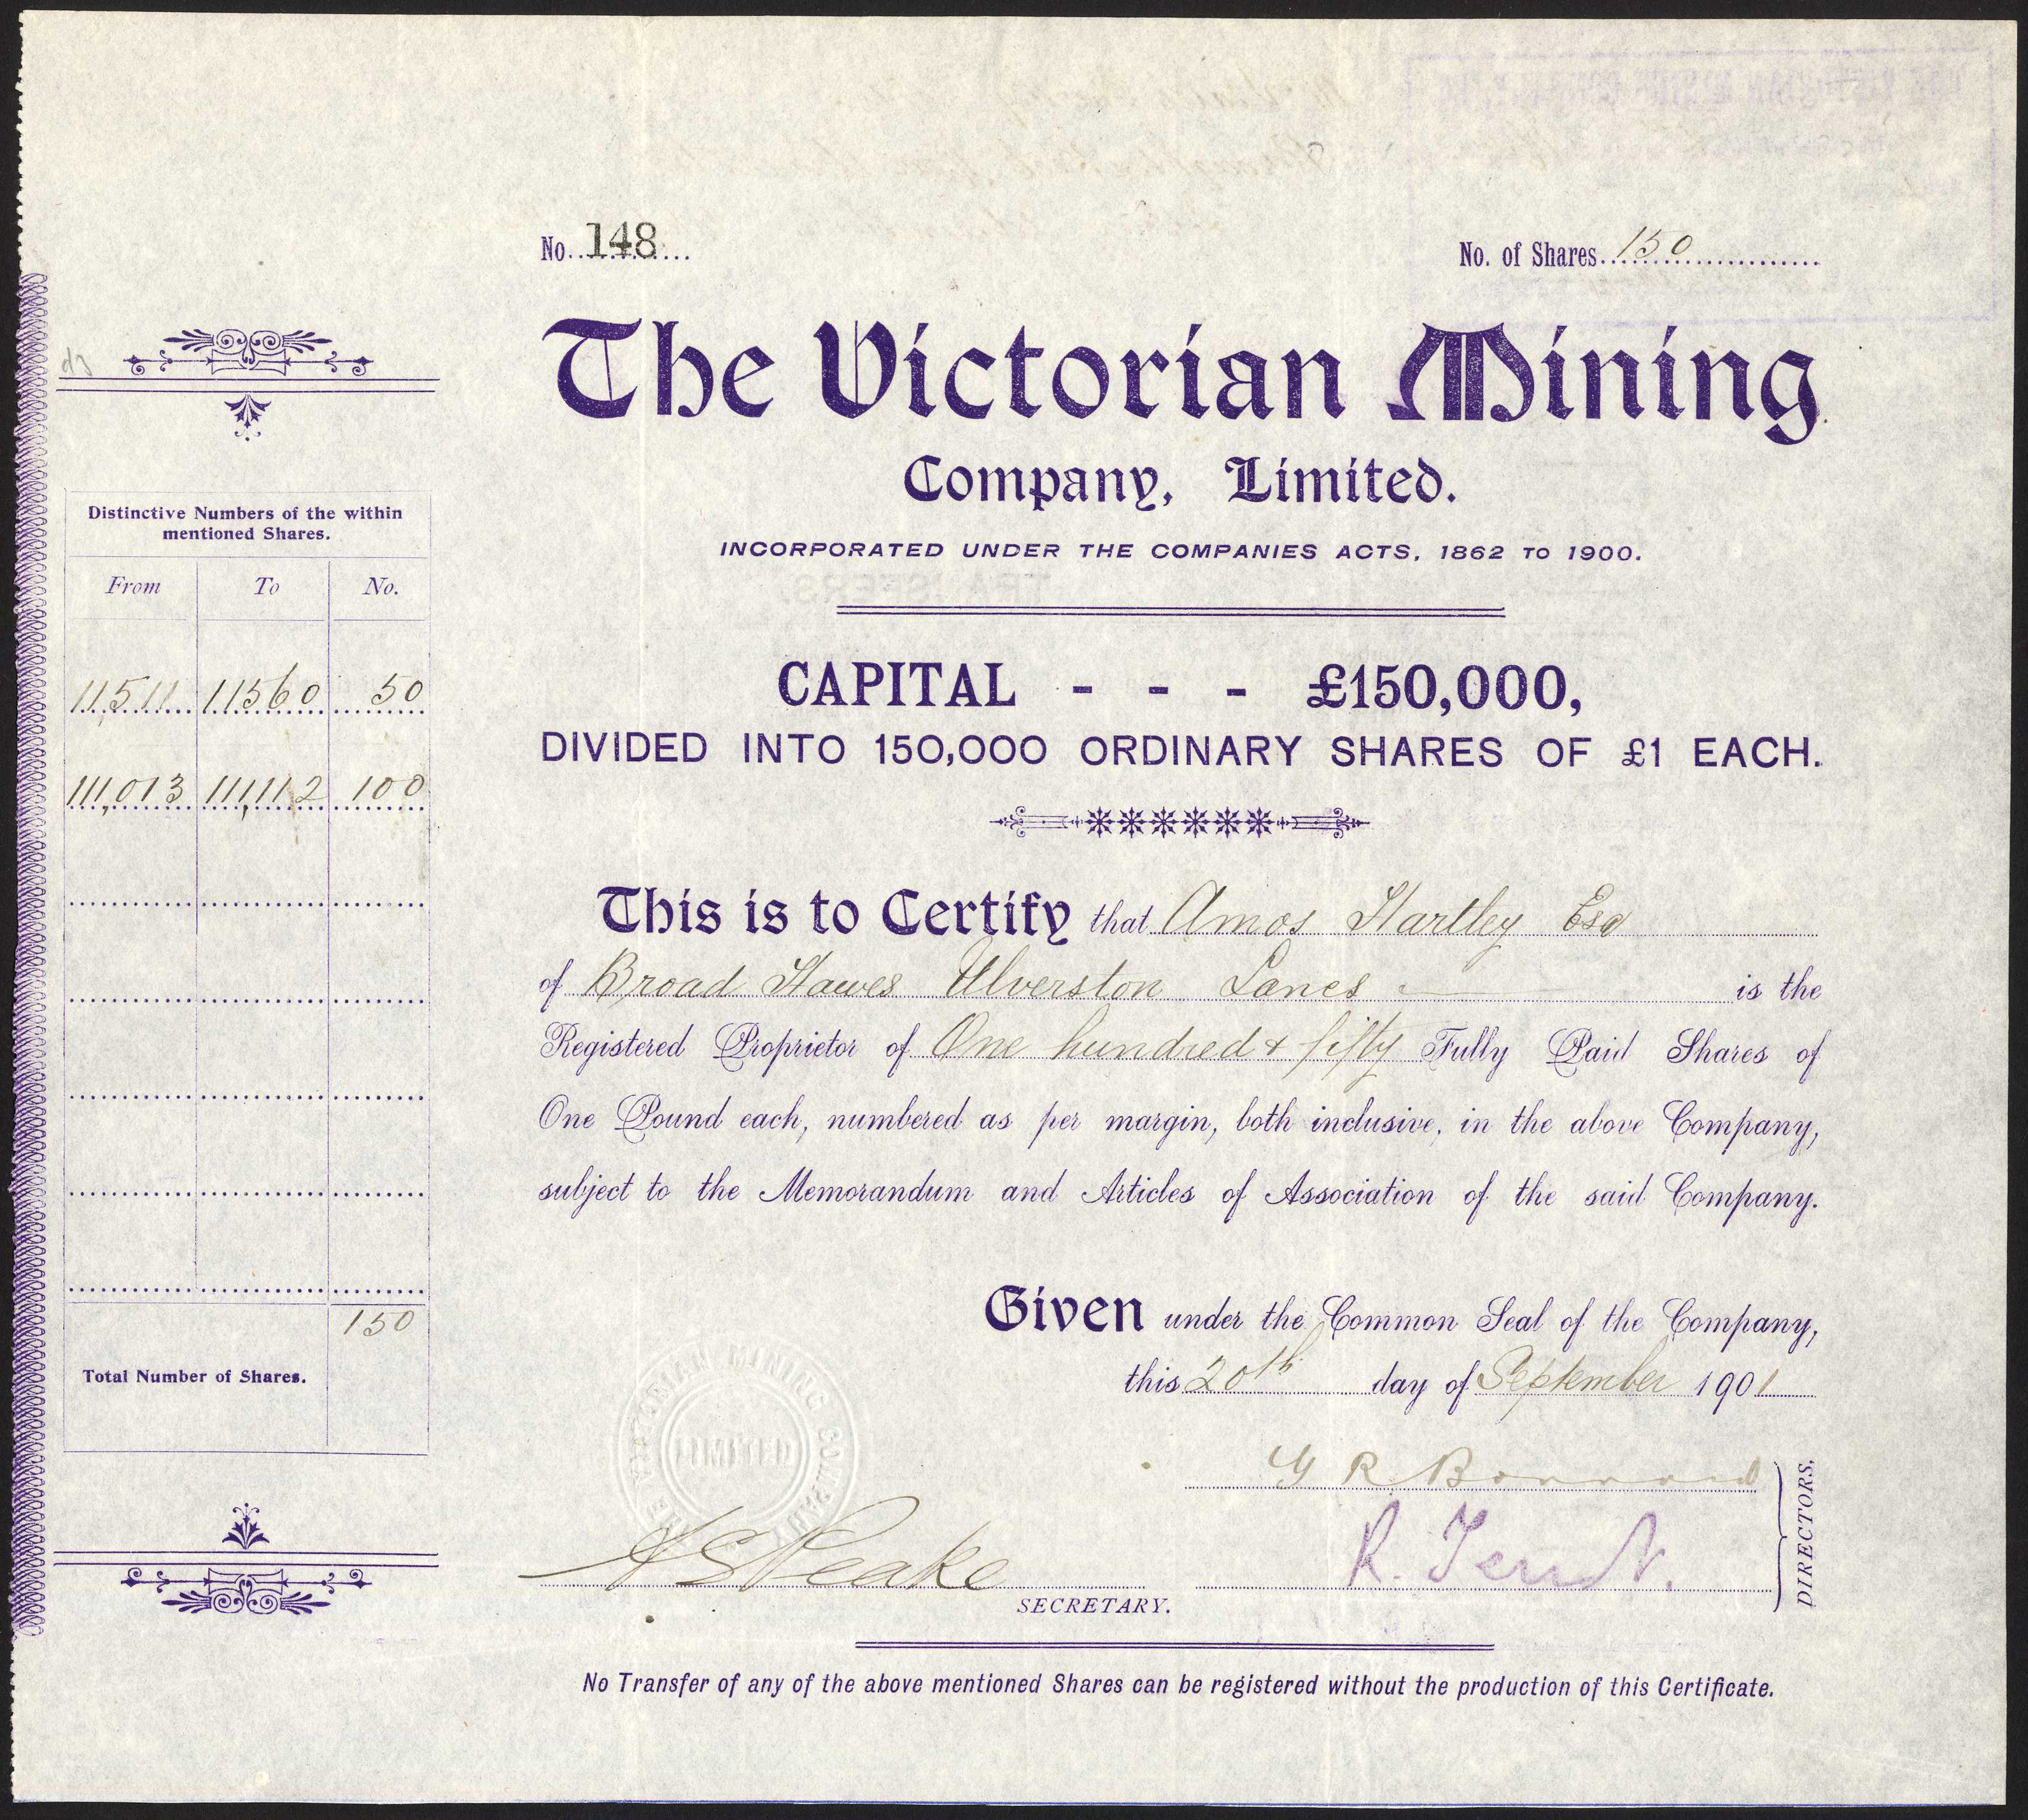 No. 148
No. of Shares 150
The Victorian Mining
Company, Limited.
INCORPORATED UNDER THE COMPANIES ACTS, 1862 TO 1900.
CAPITAL - - - £150,000,
DIVIDED INTO 150,000 ORDINARY SHARES OF £1 EACH.
This is to Certify that Amos Hartley Esq
of Broad Hawes Ulverston Lancs is the
Registered Proprietor of One hundred & fifty Fully Paid Shares of
One Pound each, numbered as per margin, both inclusive, in the above Company,
subject to the Memorandum and Articles of Association of the said Company.
Given under the Common Seal of the Company,
this 20th day of September 1901
G R B
R. T
DIRECTORS.
A S Peake
SECRETARY.
No Transfer of any of the above mentioned Shares can be registered without the production of this Certificate.
Distinctive Numbers of the within
mentioned Shares.
From To No.
11511 11560 50
111,013 111,112 100
150
Total Number of Shares.
THE VICTORIAN MINING COMPANY
LIMITED